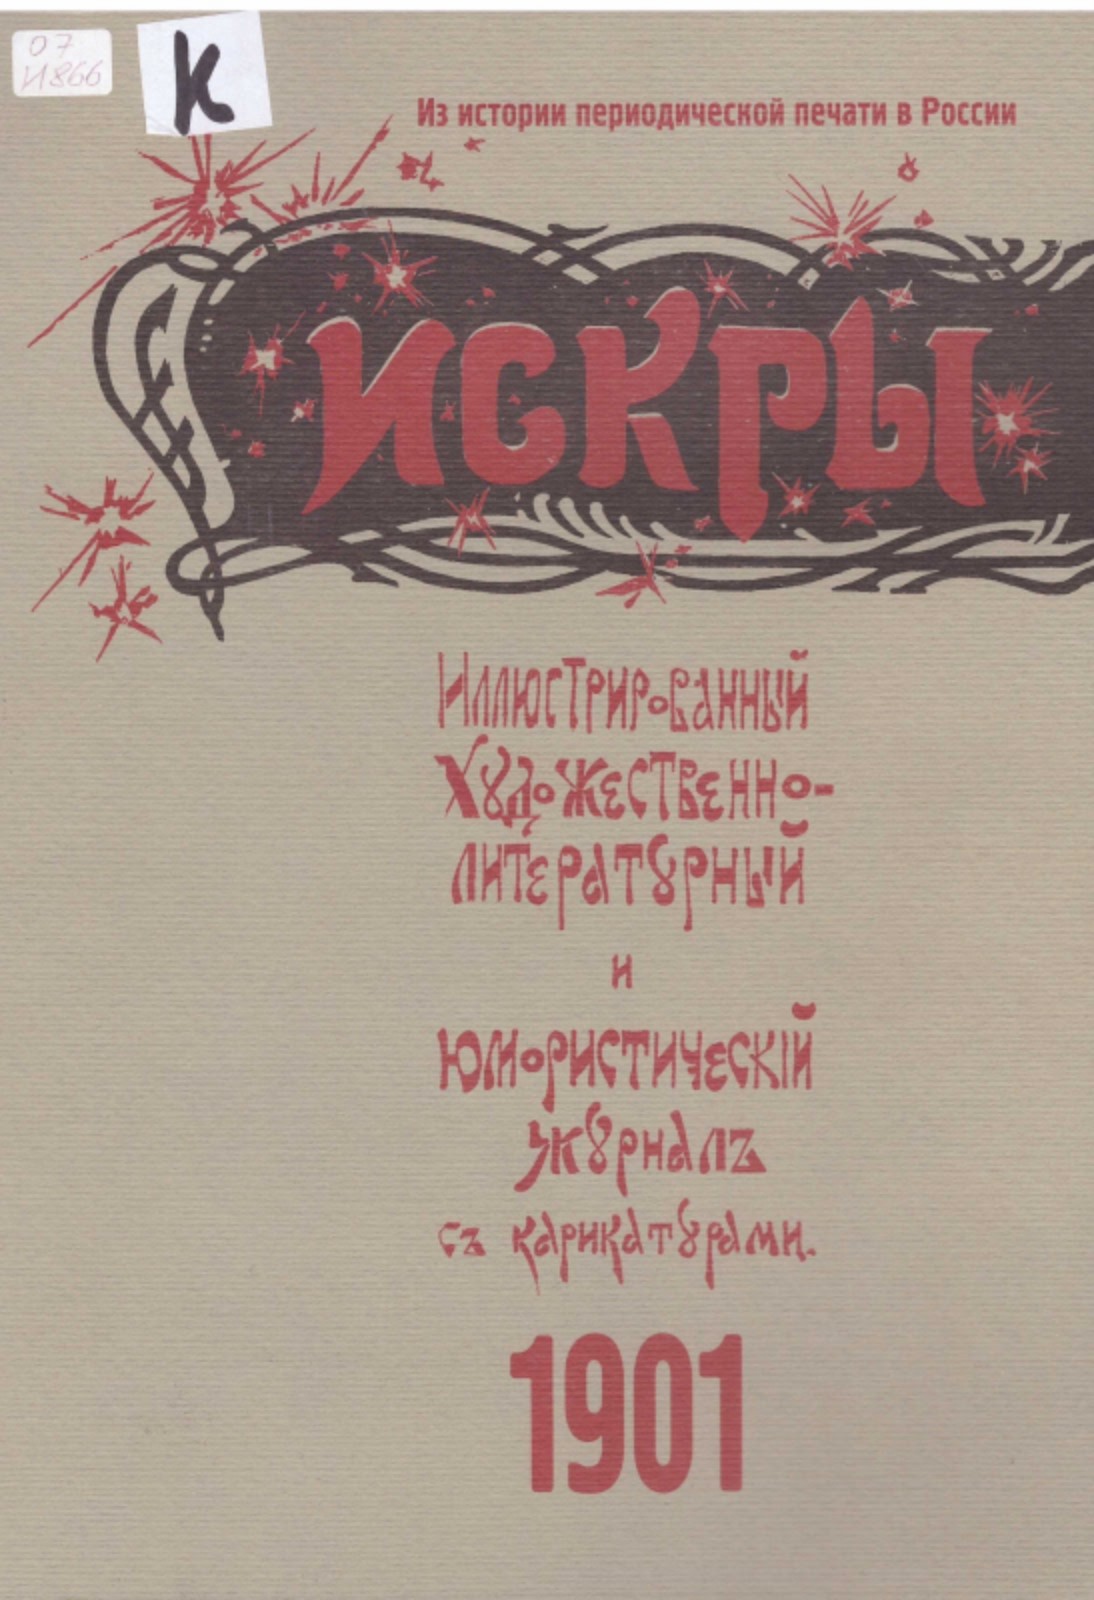 07
И866
К
Из истории периодической печати в России
ИСКРЫ
Иллюстрированный
Художественно-
литературный
и
юмористическій
журналъ
съ карикатурами.
1901